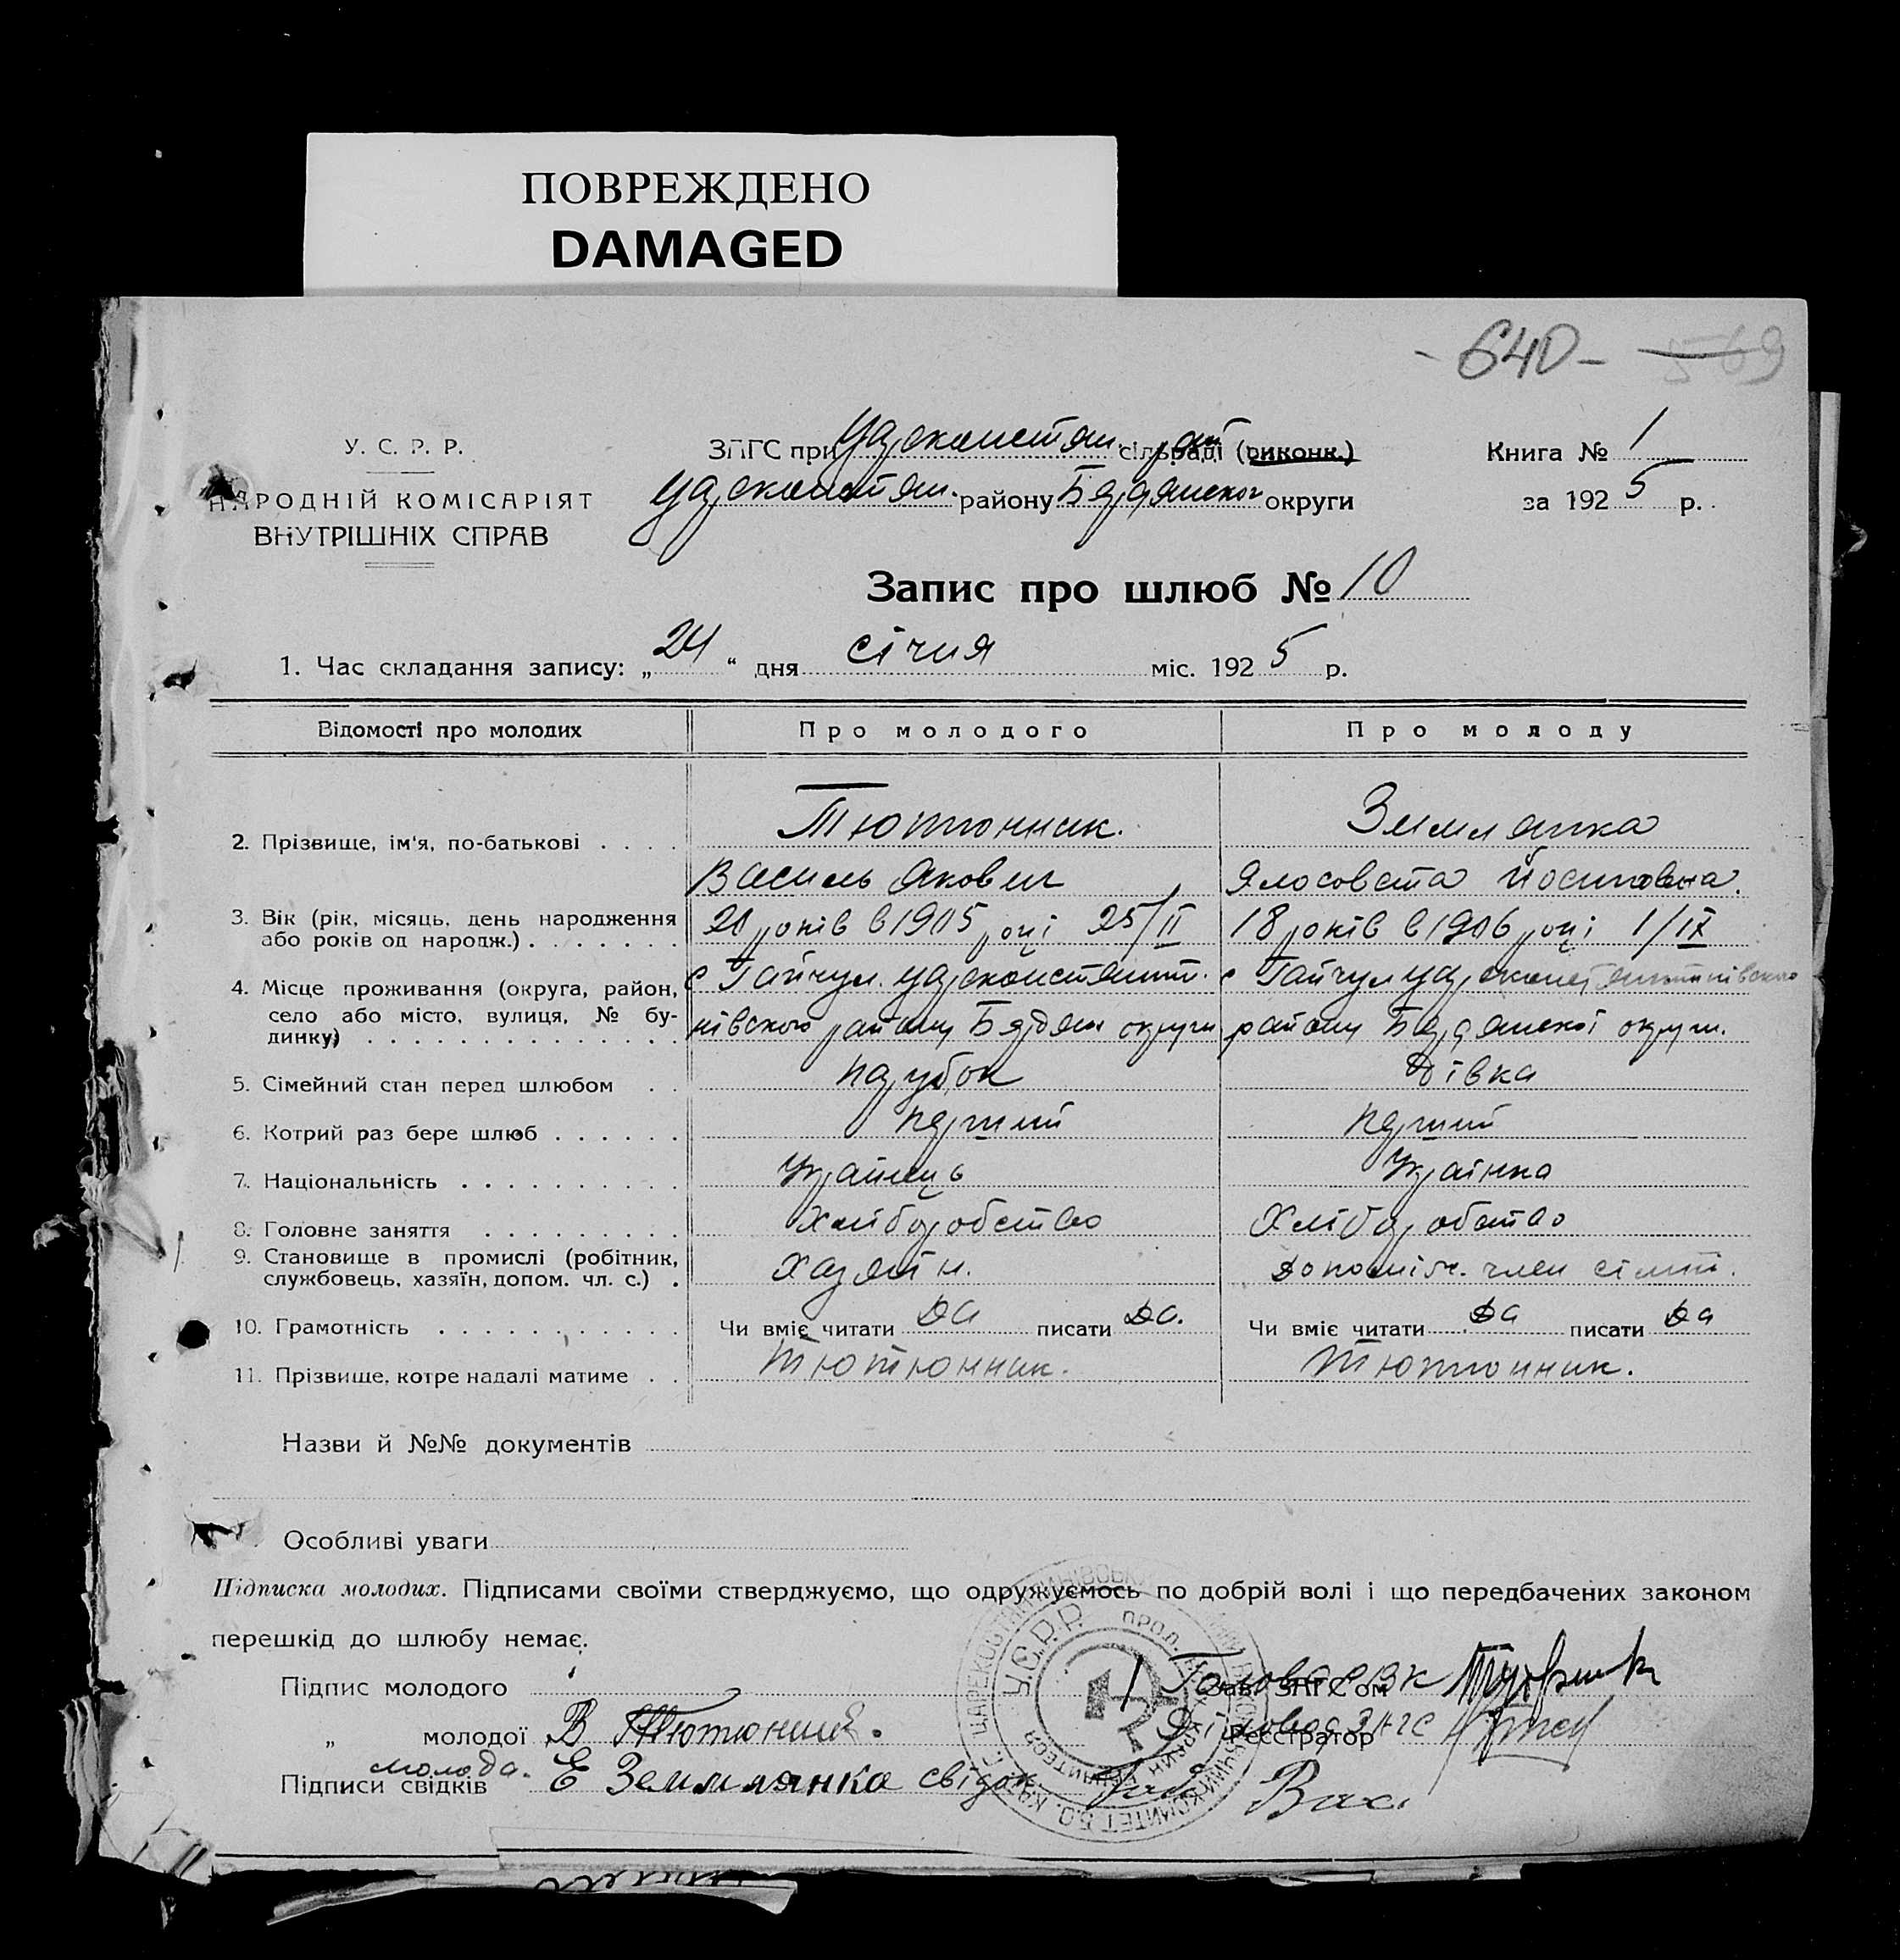 ПОВРЕЖДЕНО
DAMAGED
- 640 - 569
У. С. Р. Р.
НАРОДНІЙ КОМІСАРІЯТ
ВНУТРІШНІХ СПРАВ
ЗПГС при Цареконстян. сільраді (риконк.)
Цареконстян. району Бердянської округи
Книга № 1
за 1925 р.
Запис про шлюб № 10
1. Час складання запису: „24“ дня січня міс. 1925 р.
Відомості про молодих Про молодого Про молоду
2. Прізвище, ім'я, по-батькові . . . . Тютюнник. Землянка
Василь Якович Ялосовета Йосиповна.
3. Вік (рік, місяць, день народження або років од народж.) . . . . . . . 20 років в 1905 році 25/II 18 років в 1906 році 1/IX
4. Місце проживання (округа, район, село або місто, вулиця, № будинку) с Гайчул. Цареконстянти- с Гайчул Цареконстянтинівського
нівского району Бердян округи району Бердянскої округи.
5. Сімейний стан перед шлюбом . . парубок дівка
6. Котрий раз бере шлюб . . . . . . перший перший
7. Національність . . . . . . . . . . Українець Українка
8. Головне заняття . . . . . . . . . Хліборобство Хліборобство
9. Становище в промислі (робітник, службовець, хазяїн, допом. чл. с.) . Хазяїн. допоміж. член сімї.
10. Грамотність . . . . . . . . . . . Чи вміє читати да писати да. Чи вміє читати да писати да
11. Прізвище, котре надалі матиме . . Тютюнник. Тютюнник.
Назви й №№ документів
Особливі уваги
Підписка молодих. Підписами своїми стверджуємо, що одружуємось по добрій волі і що передбачених законом
перешкід до шлюбу немає.
Підпис молодого Голова РВК
Зав. ЗПГС'ом
„ молодої В Тютюнник. Діловод ЗАГС
Реєстратор
молода.
Підписи свідків Е Земмлянка свідок
У.С.Р.Р.